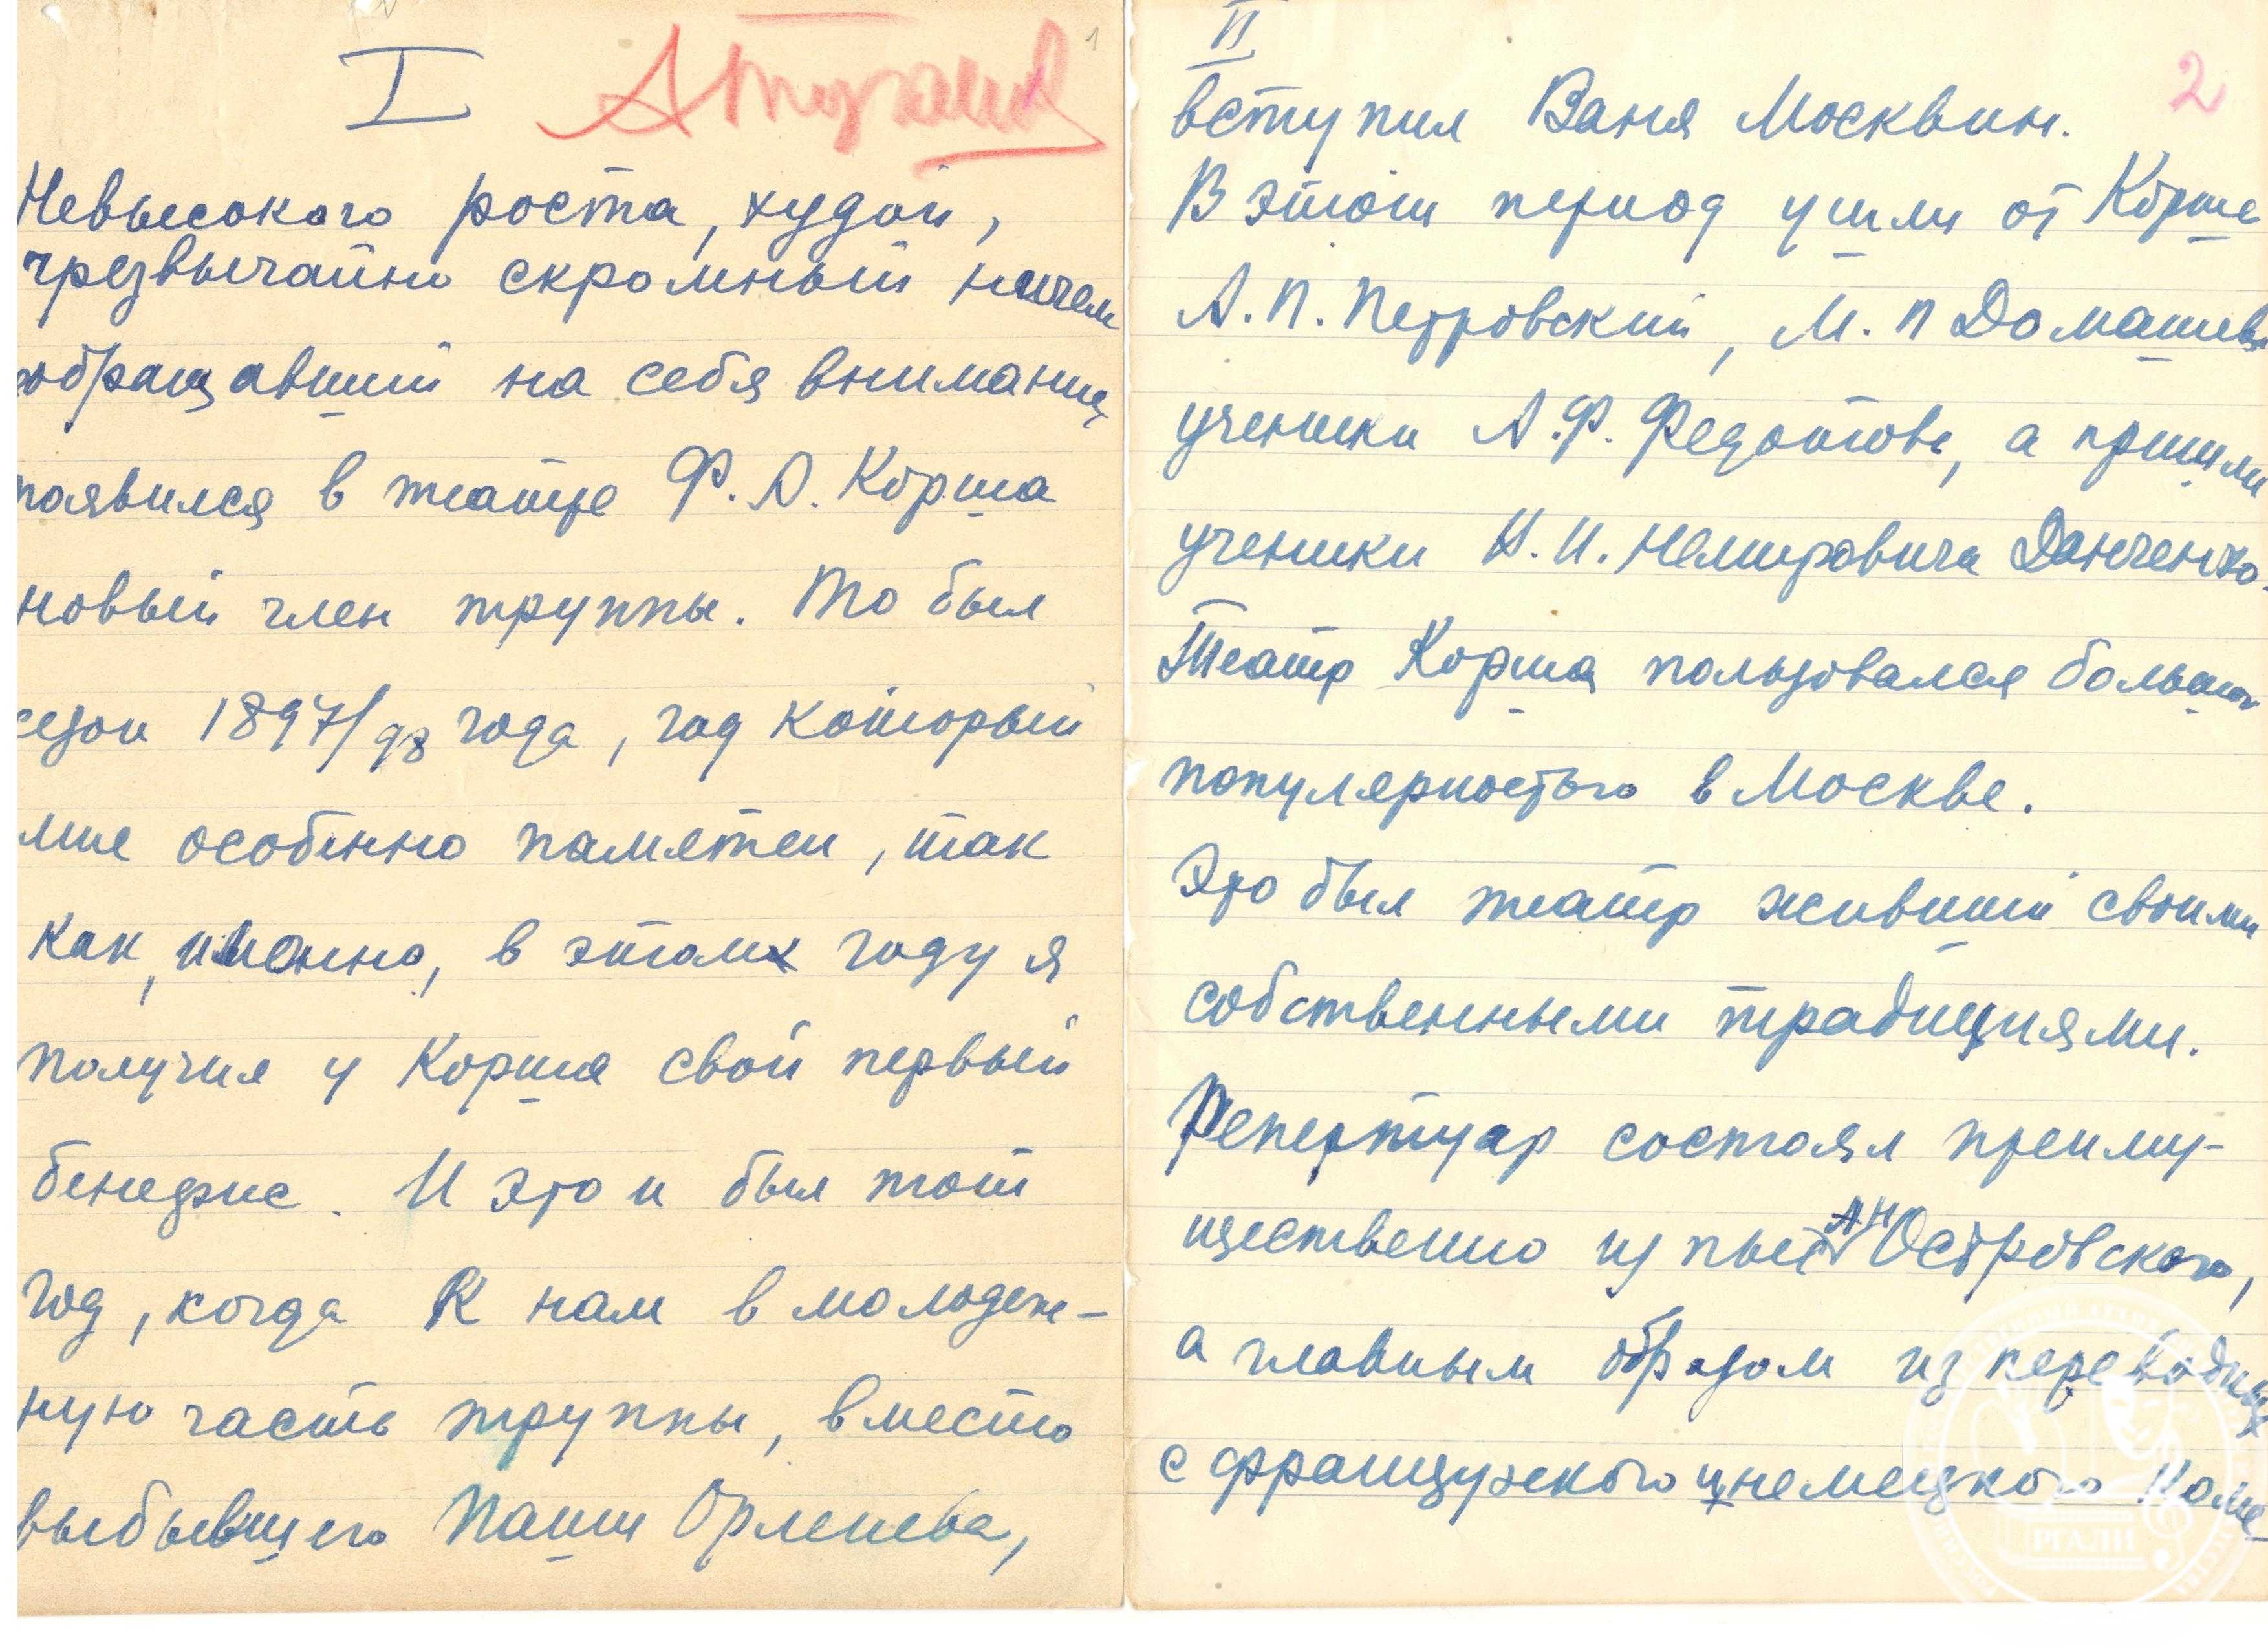 I
1
Невысокого роста, худой,
чрезвычайно скромный ничем
обращавший на себя внимание,
появился в театре Ф. А. Корша
новый член труппы. То был
сезон 1897/98 года, год который
мне особенно памятен, так
как, именно, в этом году я
получил у Корша свой первый
бенефис. И это и был тот
год, когда к нам в молодеж-
ную часть труппы, вместо
выбывшего Паши Орленева,
II
2
вступил Ваня Москвин.
В этот период ушли от Корша
А. П. Петровский, М. П Домашева
ученики А. Ф. Федотова, а пришли
ученики Н. И. Немировича Данченко.
Театр Корша пользовался большой
популярностью в Москве.
Это был театр живший своими
собственными традициями.
Репертуар состоял преиму-
щественно из пьес АН Островского,
а главным образом из переводных
с французского и немецкого коме-
РГАЛИ